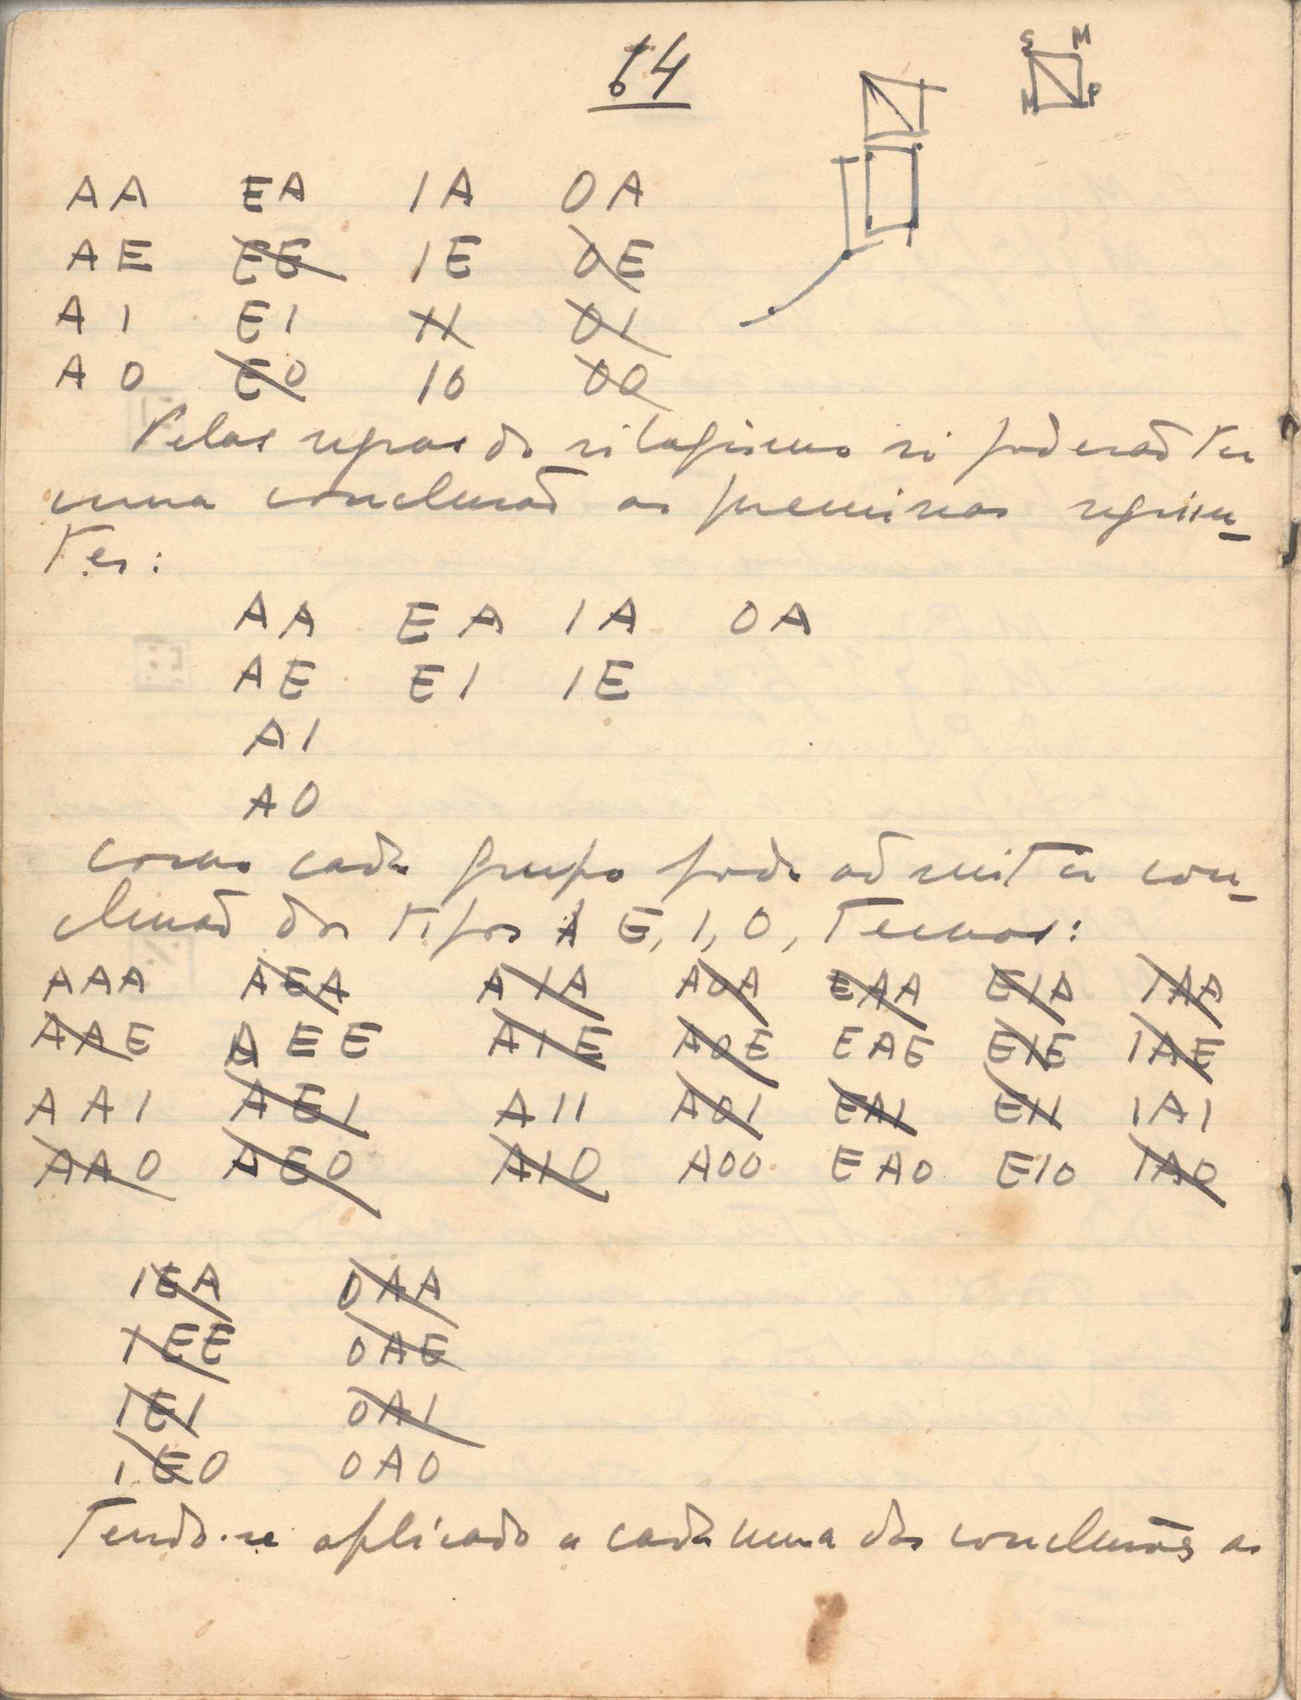 64
S M
P
AA EA IA OA
AE EE IE OE
AI EI II OI
AO EO IO OO
Pelas regras do silogismo só poderão ter
uma conclusão as premissas seguin-
tes:
AA EA IA OA
AE EI IE
AI
AO
Como cada grupo pode admitir con-
clusão dos tipos A E, I, O, Temos:
AAA AEA AIA AOA EAA EIA IAA
AAE AEE AIE AOE EAE EIE IAE
AAI AEI AII AOI EAI EII IAI
AAO AEO AIO AOO EAO EIO IAO
IEA OAA
IEE OAE
IEI OAI
IEO OAO
Tendo-se aplicado a cada uma das conclusões as